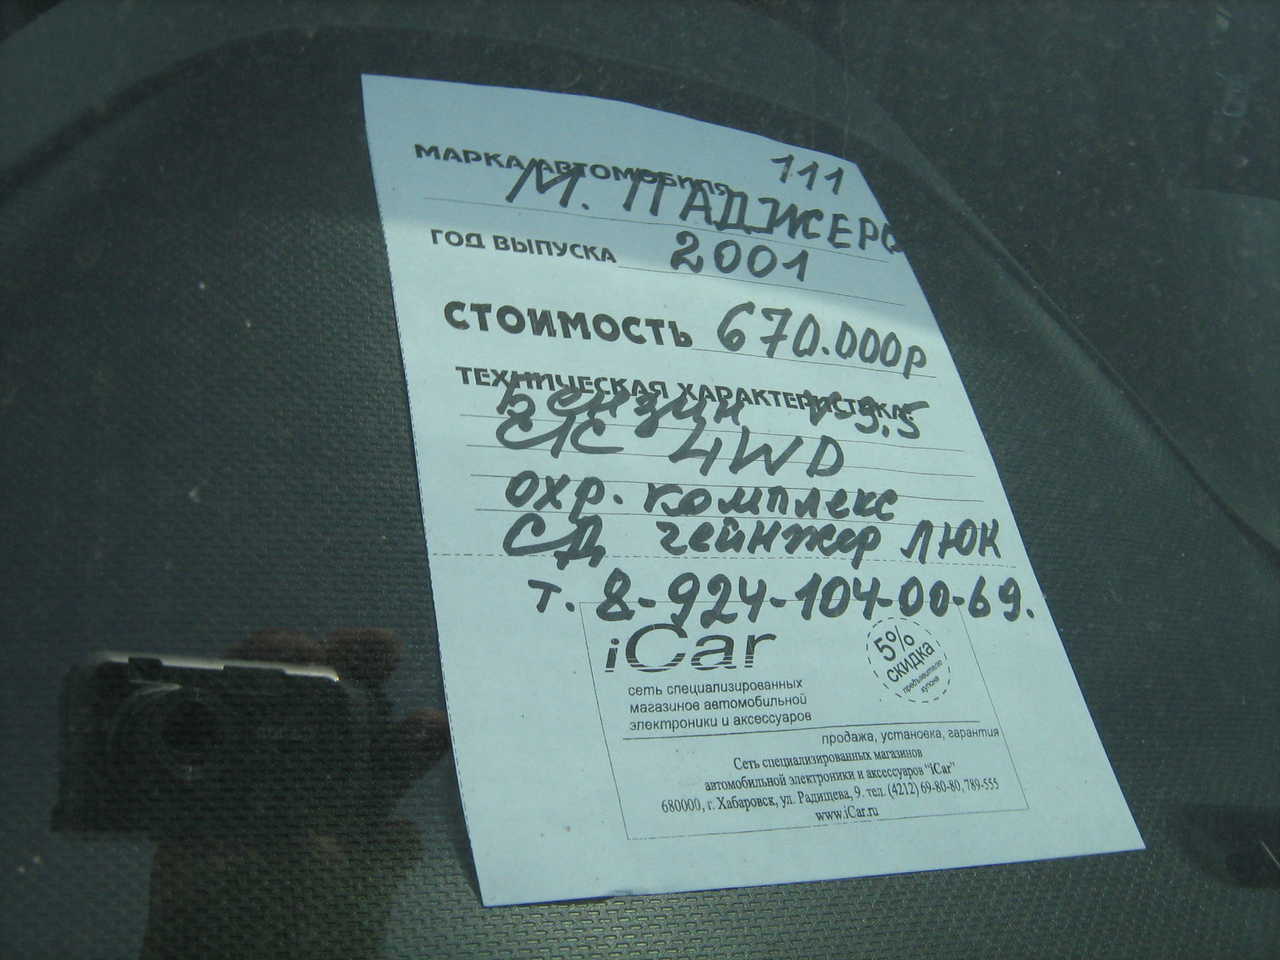 МАРКА АВТОМОБИЛЯ 111
М. ПАДЖЕРО
ГОД ВЫПУСКА 2001
СТОИМОСТЬ 670.000р
ТЕХНИЧЕСКАЯ ХАРАКТЕРИСТИКА:
Бензин V-3,5
С/С 4WD
охр. комплекс
СД чейнжер ЛЮК
т. 8-924-104-00-69.
iCar
5% скидка
предъявителю
купона
сеть специализированных
магазинов автомобильной
электроники и аксессуаров
продажа, установка, гарантия
Сеть специализированных магазинов
автомобильной электроники и аксессуаров "iCar"
680000, г. Хабаровск, ул. Радищева, 9. тел. (4212) 69-80-80, 789-555
www.iCar.ru